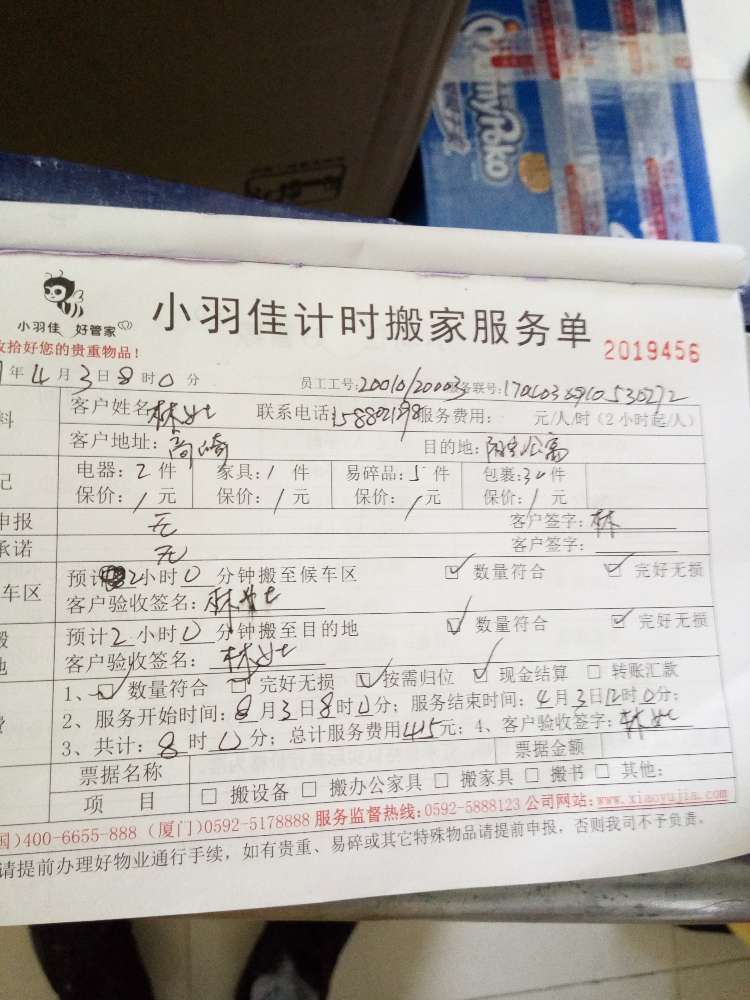 Yummy Poko
小羽佳 好管家
小羽佳计时搬家服务单
收拾好您的贵重物品！
2019456
年4月3日8时0分 员工工号:20010/20003 服务联号:
客户姓名 联系电话: 服务费用: 元/人/时（2小时起/人）
客户地址:高崎 目的地: 公寓
电器:2件 家具:1件 易碎品:5件 包裹:30件
保价:/元 保价:/元 保价:/元 保价:/元
申报 无 客户签字:林
承诺 无 客户签字:
车区 预计2小时0分钟搬至候车区 ☑数量符合 ☑完好无损
客户验收签名:
预计2小时0分钟搬至目的地 ☑数量符合 ☑完好无损
客户验收签名:
1、☑数量符合 □完好无损 ☑按需归位 ☑现金结算 □转账汇款
2、服务开始时间:8月3日8时0分；服务结束时间:4月3日12时0分；
3、共计:8时0分；总计服务费用415元；4、客户验收签字:
票据名称 票据金额
项目 □搬设备 □搬办公家具 □搬家具 □搬书 □其他:
国)400-6655-888 (厦门)0592-5178888 服务监督热线:0592-5888123 公司网站:www.xiaoyujia.com
请提前办理好物业通行手续，如有贵重、易碎或其它特殊物品请提前申报，否则我司不予负责。